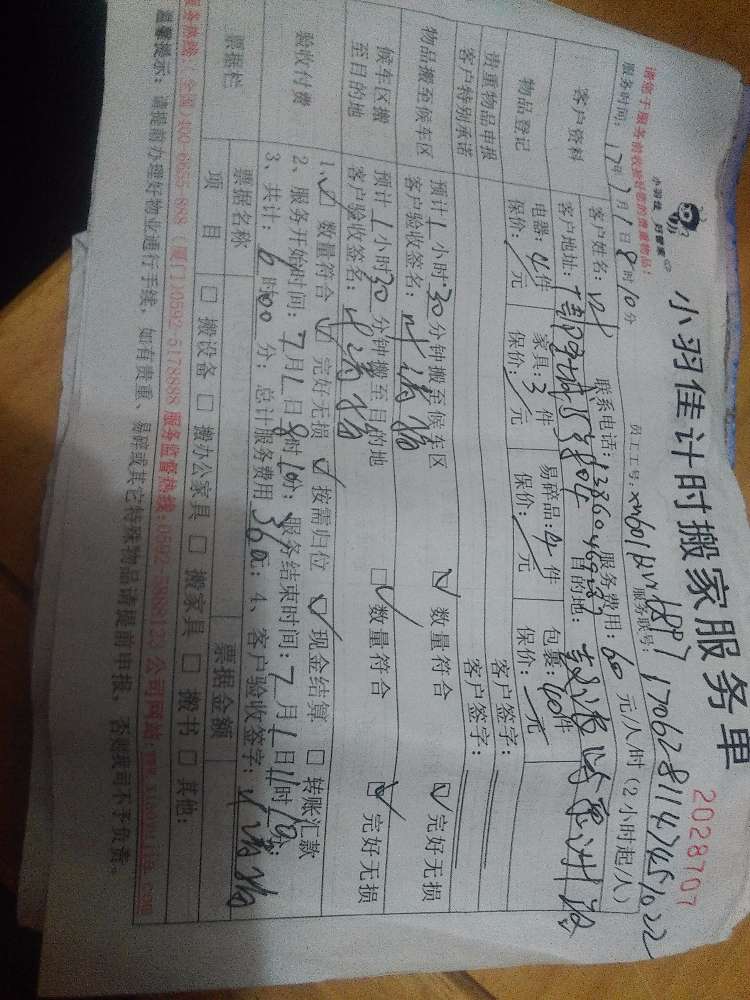 小羽佳 好管家
小羽佳计时搬家服务单
2028707
请您于服务前收捡好您的贵重物品!
员工工号:
服务联号: 1706281147451022
服务时间: 17年7月1日8时10分
客户资料
客户姓名: 叶
联系电话:
服务费用: 60元/人/时(2小时起/人)
客户地址:
目的地:
物品登记
电器: 4件 家具: 3件 易碎品: 件 包裹: 40件
保价: 元 保价: 元 保价: 元 保价: 元
贵重物品申报
客户签字:
客户特别承诺
客户签字:
物品搬至候车区
预计1小时30分钟搬至候车区
数量符合 完好无损
客户验收签名: 叶
候车区搬至目的地
预计1小时30分钟搬至目的地
数量符合 完好无损
客户验收签名: 叶
验收付费
1、数量符合 完好无损 按需归位 现金结算 转账汇款
2、服务开始时间: 7月1日8时10分; 服务结束时间: 7月1日11时10分;
3、共计: 6时00分; 总计服务费用360元; 4、客户验收签字: 叶
票据栏
票据名称 票据金额
项目 搬设备 搬办公家具 搬家具 搬书 其他:
服务热线: 全国)400-6855-888 (厦门)0592-5178888 服务监督热线:0592-5888123 公司网站:www.xiaoyujia.com
温馨提示: 请提前办理好物业通行手续, 如有贵重、易碎或其它特殊物品请提前申报, 否则我司不予负责。